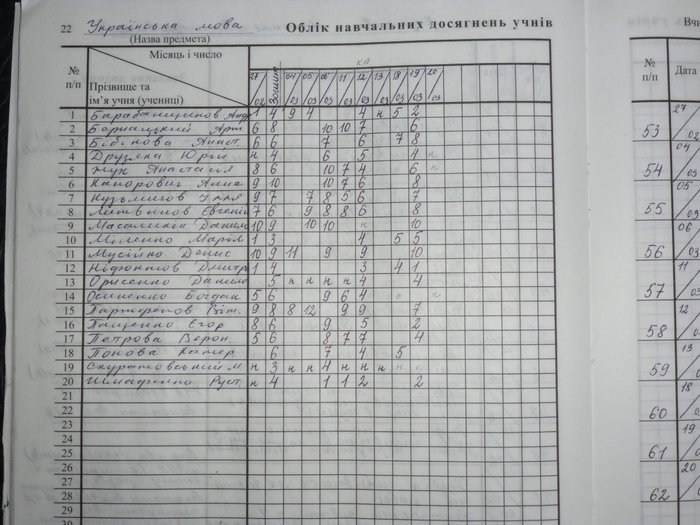 22 Українська мова Облік навчальних досягнень учнів
(Назва предмета)
Місяць і число
№ п/п
Прізвище та
ім'я учня (учениці)
27/02 Зошит 04/03 05/03 06/03 11/03 12/03 13/03 18/03 19/03 20/03
1 1 4 9 4 4 н 5 2
2 6 8 10 10 7 6
3 6 6 7 6 7 8
4 Друзека Юрій н 4 6 5 4 н
5 Жук Анастасія 8 6 10 7 4 6 н
6 Анна 9 10 10 7 6 8
7 9 7 7 8 5 6 7
8 Литвинов Євгеній 7 6 9 8 8 6 8
9 10 9 10 10 10
10 1 3 4 5 5
11 Мусійко Денис 10 9 11 9 9 10
12 Дмитро 1 4 3 4 1
13 Орисенко 5 н н н н 4 4
14 Осипенко Богдан 5 6 9 6 4
15 Парфенов Віт. 9 8 8 12 9 9 7
16 Пащенко Єгор 8 6 9 5 2
17 Петрова Верон. 5 6 8 7 7 4
18 6 7 4 5
19 н 3 н н 4 н н н
20 Руст. н 4 1 1 2 2
21
22
23
24
25
26
27
28
29
30
№ п/п Дата
53 27/02
54 04/03
55 05/03
56 06/03
57 11/03
58 12/03
59 13/03
60 18
61 19
62 20